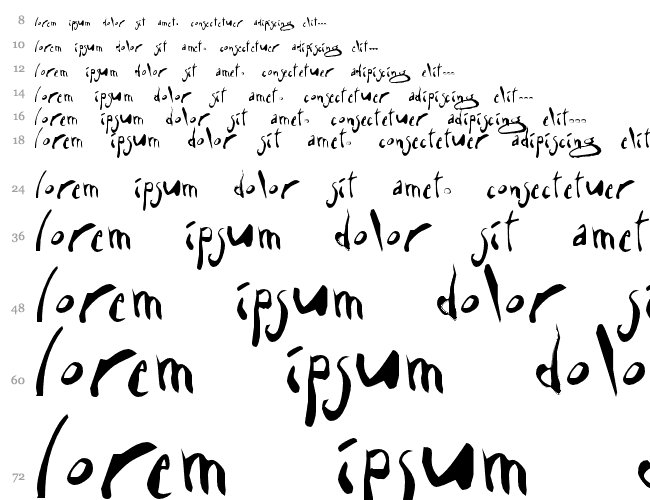 8 lorem ipsum dolor sit amet, consectetuer adipiscing elit...
10 lorem ipsum dolor sit amet, consectetuer adipiscing elit...
12 lorem ipsum dolor sit amet, consectetuer adipiscing elit...
14 lorem ipsum dolor sit amet, consectetuer adipiscing elit...
16 lorem ipsum dolor sit amet, consectetuer adipiscing elit...
18 lorem ipsum dolor sit amet, consectetuer adipiscing elit
24 lorem ipsum dolor sit amet, consectetuer
36 lorem ipsum dolor sit amet
48 lorem ipsum dolor si
60 lorem ipsum dolo
72 lorem ipsum